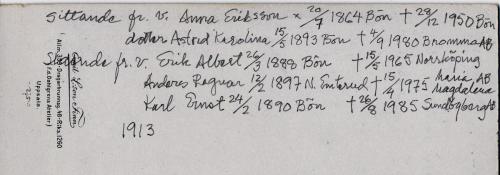 sittande fr. v. Anna Eriksson × 20/7 1864 Bön † 28/12 1950 Bön
dotter Astrid Karolina 15/5 1893 Bön † 4/9 1980 Bromma AB
Stående fr. v. Erik Albert 26/3 1888 Bön † 15/5 1965 Norrköping
Anders Ragnar 12/2 1897 N. Enterud † 15/4 1975 Maria Magdalena AB
Karl Ernst 24/2 1890 Bön † 26/8 1985 Sundbyberg AB
1913
(f.d. Dahlgrens Atelier)
Uppsala